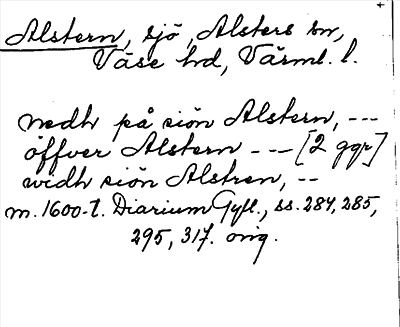 Alstern, sjö, Alsters sn,
Väse hd, Värml. l.
nedh på siön Alstern, ---
öffver Alstern --- [2 ggr]
widh siön Alstren, --
m. 1600-t. Diarium Gyll., ss. 284, 285,
295, 317. orig.